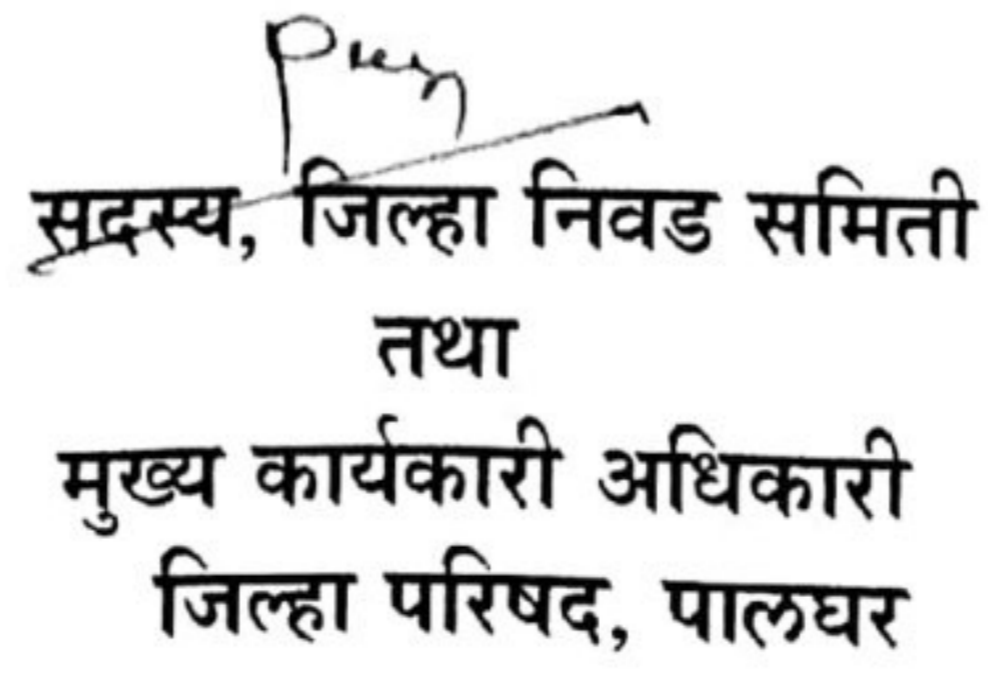 सदस्य, जिल्हा निवड समिती
तथा
मुख्य कार्यकारी अधिकारी
जिल्हा परिषद, पालघर